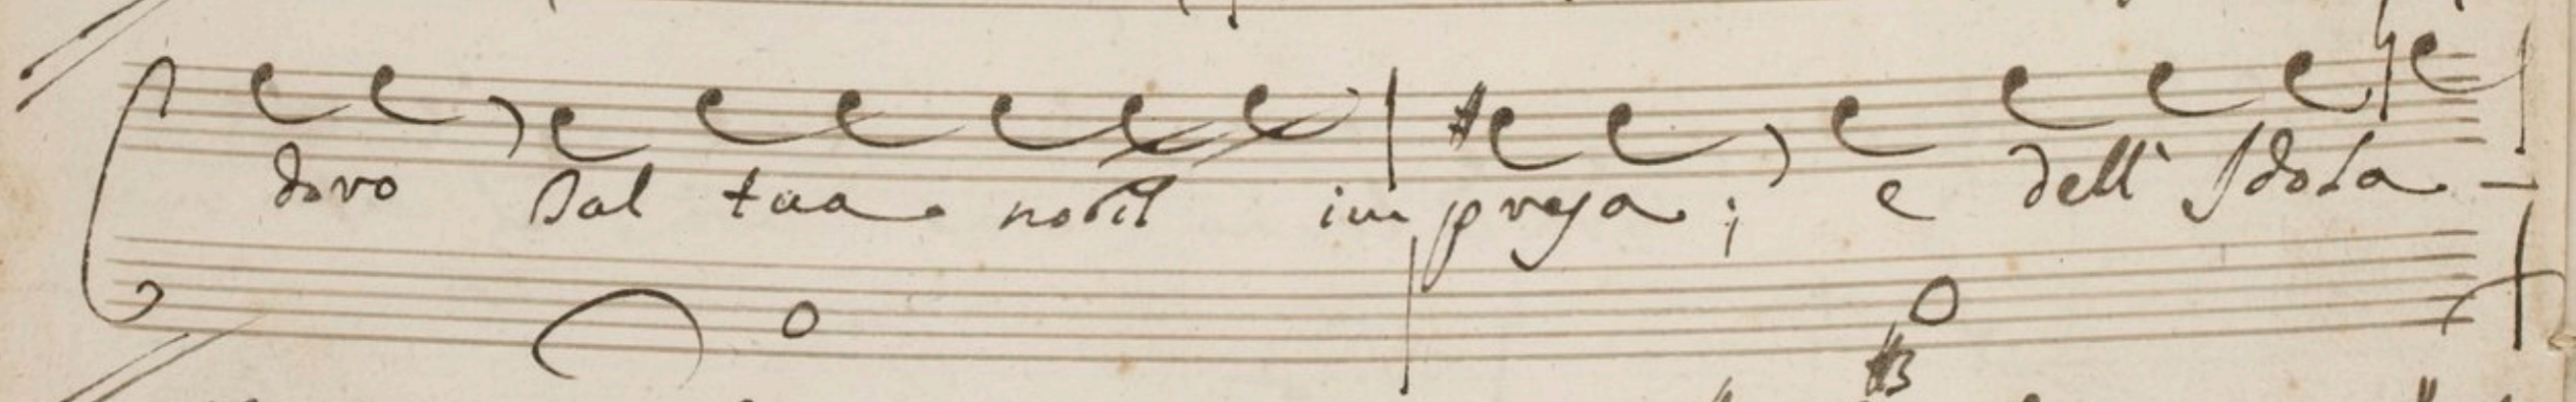 dovo dal tua nobil impresa; e dell' Idola-